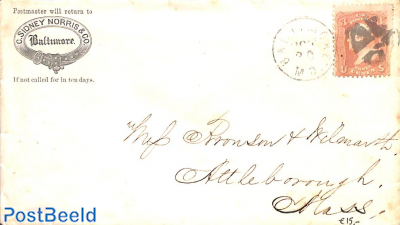 Postmaster will return to
C. SIDNEY NORRIS & CO.
Baltimore.
If not called for in ten days.
MD.
U S
Mess Bronson & Wilmarth.
Attleborough,
Mass.
€15,-
PostBeeld